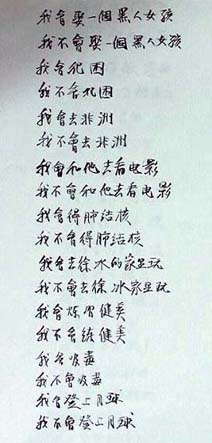 我會娶一個黑人女孩
我不會娶一個黑人女孩
我會犯困
我不會犯困
我會去非洲
我不會去非洲
我會和他去看电影
我不會和他去看电影
我會得肺结核
我不會得肺结核
我會去徐冰的家里玩
我不會去徐冰家里玩
我會练健美
我不會练健美
我會吸毒
我不會吸毒
我會登上月球
我不會登上月球